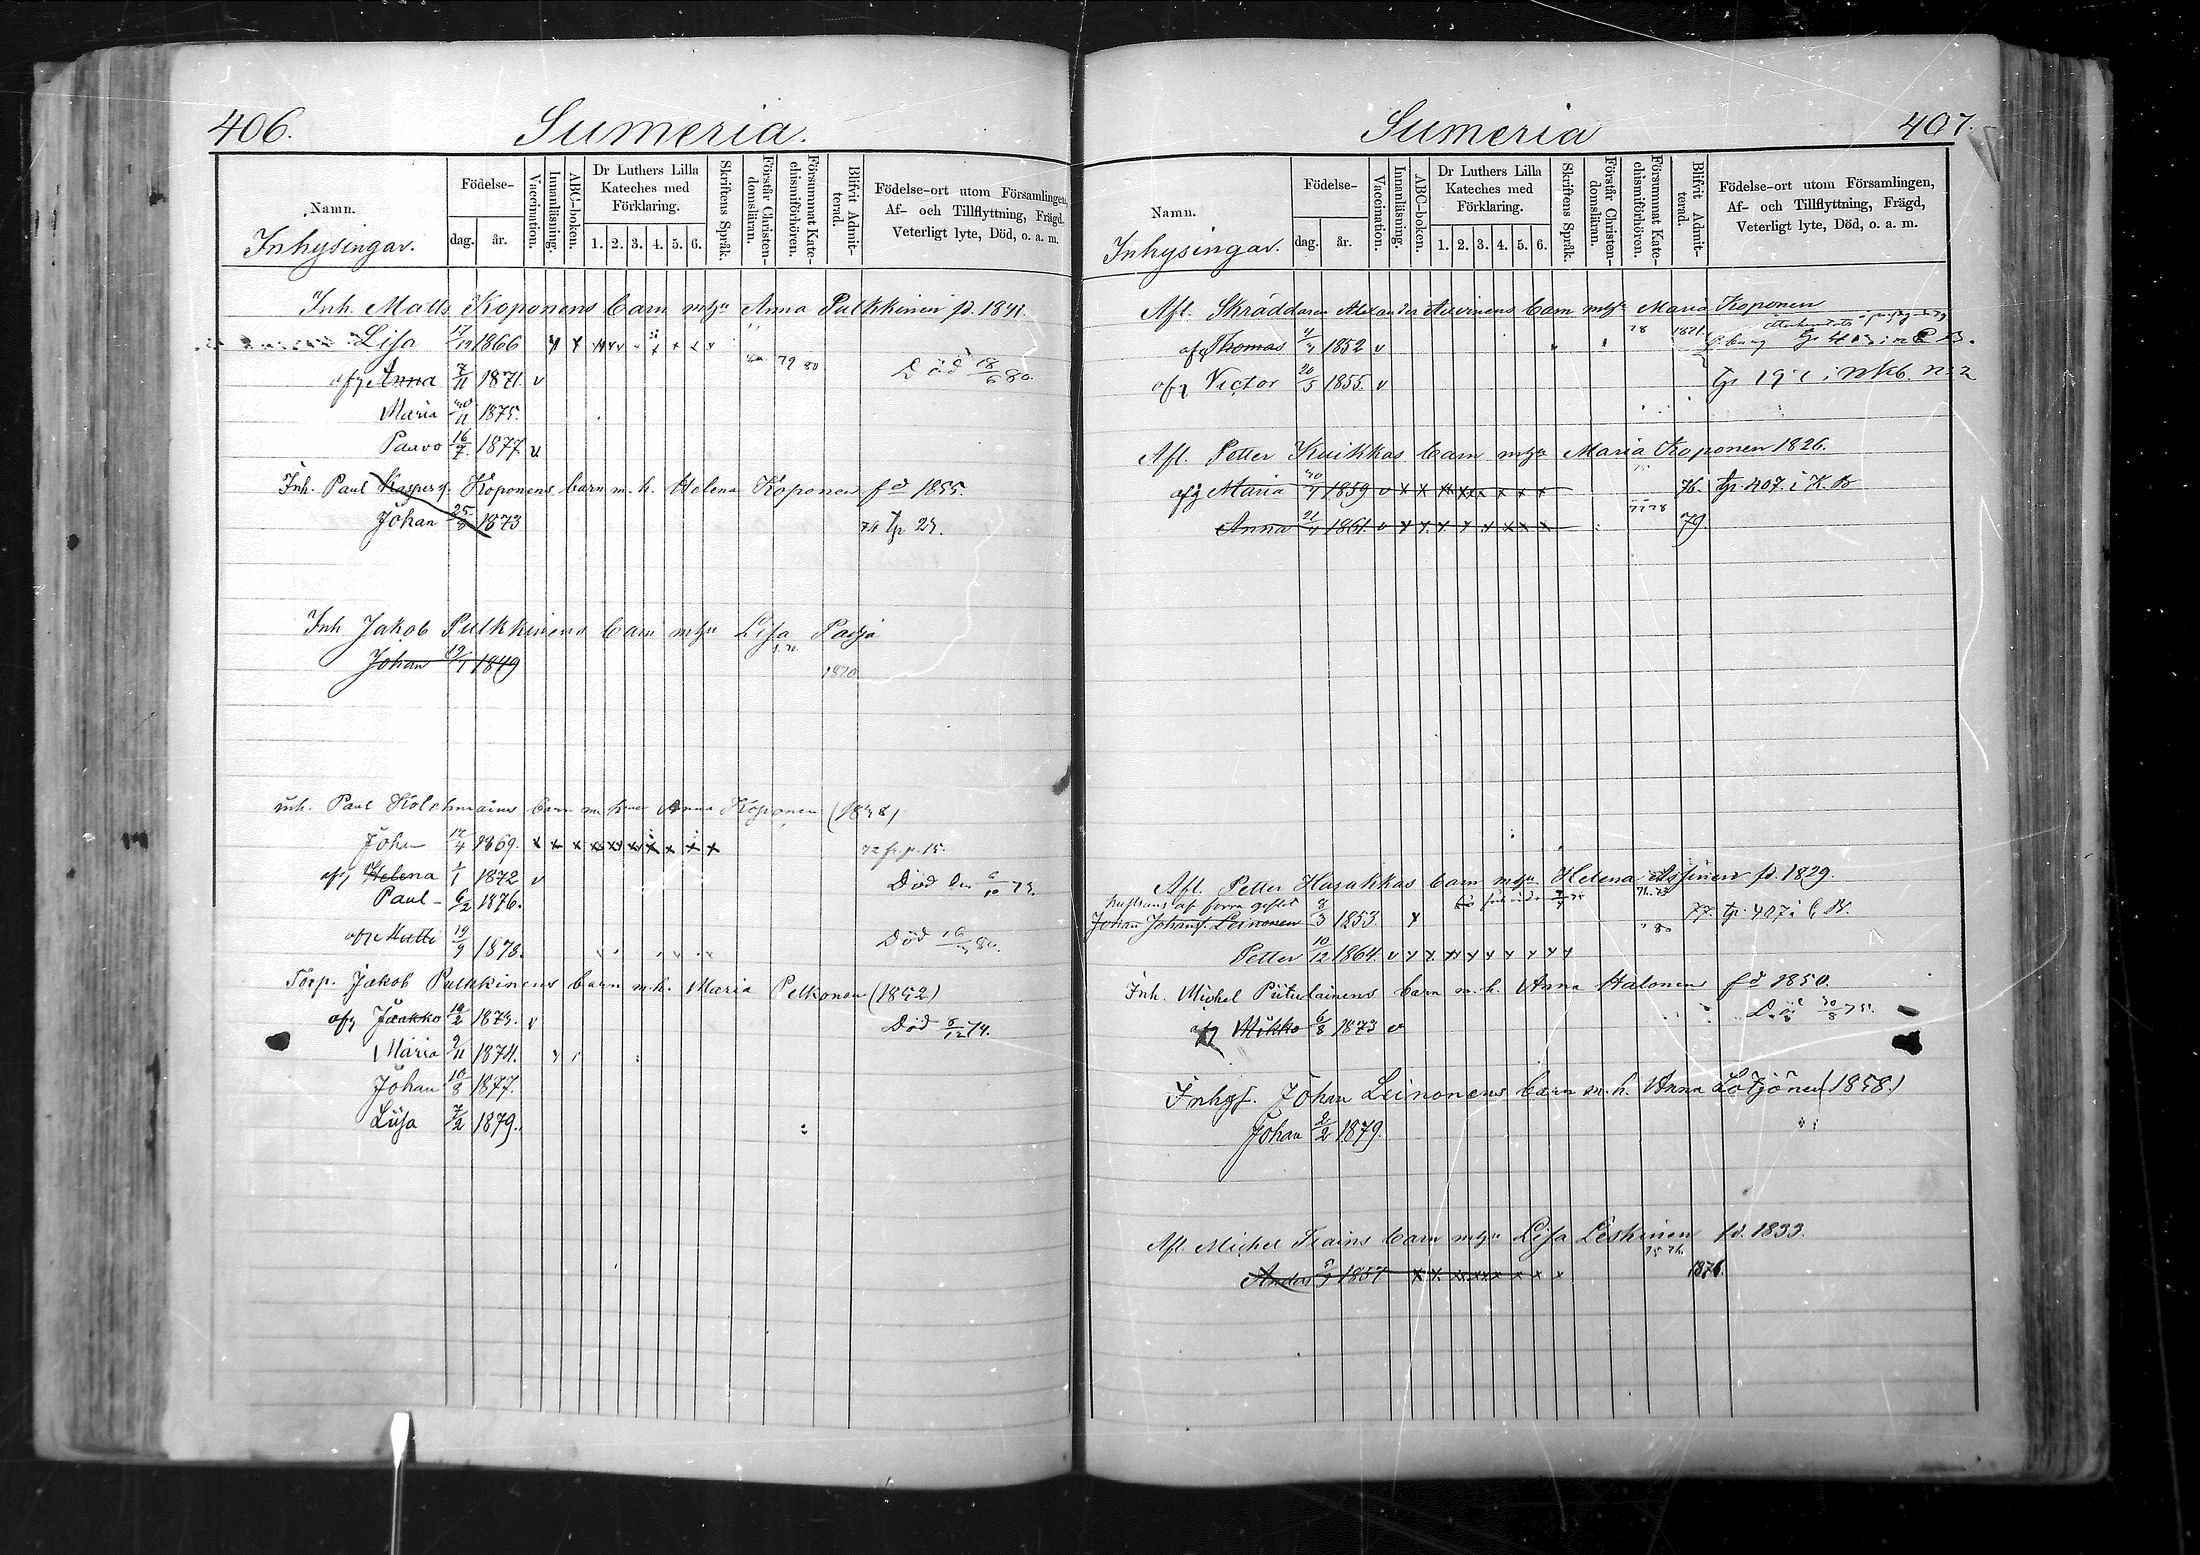 406.
Sumeria.
Namn.
Inhysingar.
Födelse-
dag. år.
Vaccination.
Innanläsning.
ABC-boken.
Dr Luthers Lilla Kateches med Förklaring.
1. 2. 3. 4. 5. 6.
Skriftens Språk.
Förstår Christendomsläran.
Försummat Katechismiförhören.
Blifvit Admitterad.
Födelse-ort utom Församlingen, Af- och Tillflyttning, Frägd, Veterligt lyte, Död, o. a. m.
Inh. Matts Koponens barn m hu Anna Pulkkinen fd. 1841.
Lisa 17/12 1866
afg Anna 7/11 1871. v 79 80 Död 18/6 80.
Maria 11 1875.
Paavo 16/7 1877 v
Inh. Paul Kaspers. Koponens barn m. h. Helena Koponen fd 1855.
Johan 25/8 1873 74 tp 23.
Inh Jakob Pulkkinens barn m hu Lisa
Johan 19/1 1849 1870
inh. Paul Kolehmainens barn m hu Anna Koponen (1848)
Johan 17/4 1869. x x x x x x x x x x 72 fr. p. 15.
afg Helena 1/1 1872 v Död den 6/10 73.
Paul - 6/2 1876.
afg Matti 19/9 1878. Död 16 80.
Torp. Jakob Pulkkinens barn m. h. Maria Pelkonen (1852)
afg Jaakko 19/2 1873. v Död 8/12 74.
Maria 9/11 1874.
Johan 10/8 1877.
Liisa 7/2 1879.
407.
Sumeria
Namn.
Inhysingar.
Födelse-
dag. år.
Vaccination.
Innanläsning.
ABC-boken.
Dr Luthers Lilla Kateches med Förklaring.
1. 2. 3. 4. 5. 6.
Skriftens Språk.
Förstår Christendomsläran.
Försummat Katechismiförhören.
Blifvit Admitterad.
Födelse-ort utom Församlingen, Af- och Tillflyttning, Frägd, Veterligt lyte, Död, o. a. m.
Afl. Skräddaren Alexander barn m hu Maria Koponen
afg Thomas 1852 v
afg Victor 20/5 1855. v
Afl. Petter Kuikkas barn m hu Maria Koponen 1826.
afg Maria 1859 v x x x x x x x x 76. tp. 407. i K. B
77 78
Anna 21 1861. v x x x x x x x x 79.
Afl. Petter Harakkas barn m hu Helena Assinen fd. 1829.
Johan Johanss. Leinonen 8/3 1853. 77. tp. 407 i
Petter 10/12 1864. v
Inh. Michel Piitulainens barn m. h. Anna Halonen fd 1850.
afg Mikko 6/8 1873 v Död 30/8 75.
Inhys. Johan Leinonens barn m. h. Anna Lötjönen (1858.)
Johan 2/2 1879.
Afl. Michel barn m hu Lisa Leskinen fd. 1833.
75 76
Anders 1857 x x x x x x x x 1876.